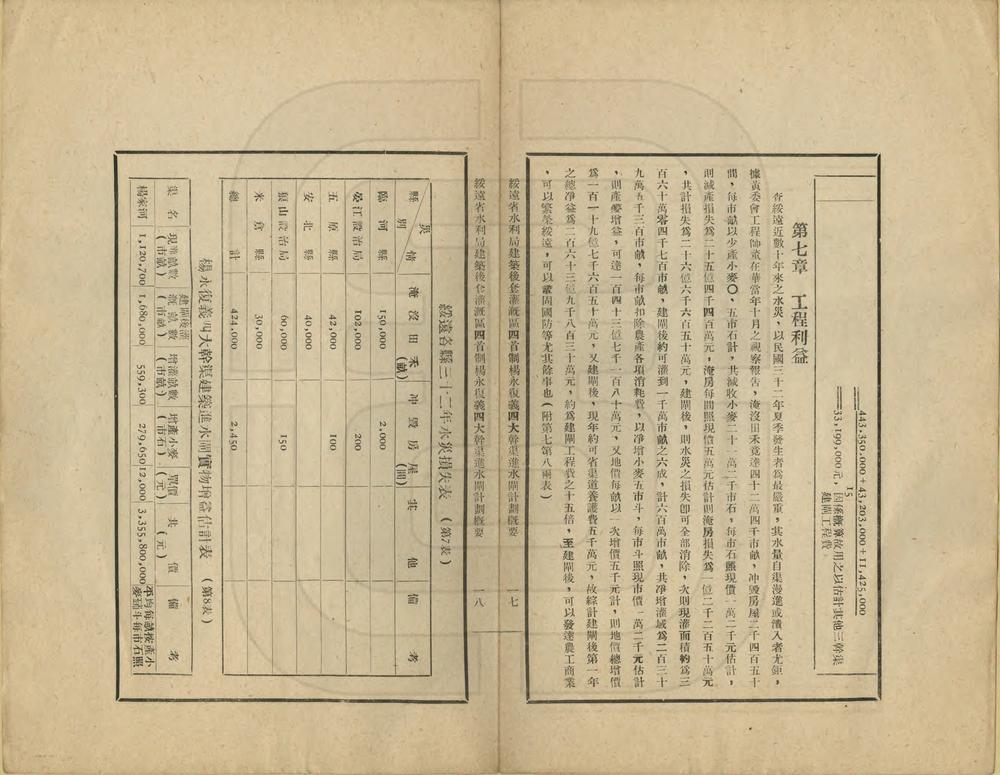 443,350.000+43,203,000+11,425,000
15
=33,199,000元,因係概算故用之以估計其他三幹渠
建閘工程費。
第七章　工程利益
查綏遠近數十年來之水災,以民國三十二年夏季發生者爲最嚴重,其水量自渠漫進或潰入者尤鉅,
據黃委會工程師董在華當年十月之視察報告,淹沒田禾竟達四十二萬四千市畝,冲毀房屋二千四百五十
間,每市畝以少產小麥〇、五市石計,共減收小麥二十一萬二千市石,每市石照現價一萬二千元估計,
則減產損失爲二十五億四千四百萬元,淹房每間照現價五萬元估計則淹房損失爲一億二千二百五十萬元
,共計損失爲二十六億六千六百五十萬元,建閘後,則水災之損失卽可全部消除,次則現灌面積約爲三
百六十萬零四千七百市畝,建閘後約可灌到一千萬市畝之六成,計六百萬市畝,共净增灌域爲二百三十
九萬五千三百市畝,每市畝扣除農產各項消耗費,以净增小麥五市斗,每市斗照現市價一萬二千元估計
,則產麥增益,可達一百四十三億七千一百八十萬元,又地價每畝以一次增價五千元計,則地價總增價
爲一百一十九億七千六百五十萬元,又建閘後,現年約可省渠道養護費五千萬元,故綜計建閘後第一年
之總净益爲二百六十三億九千八百三十萬元,約爲建閘工程費之十五倍,至建閘後,可以發達農工商業
,可以繁榮綏遠,可以鞏固國防等尤其餘事也(附第七第八兩表)
綏遠省水利局建築後套灌漑區四首制楊永復義四大幹渠進水閘計劃概要　一七
綏遠省水利局建築後套灌漑區四首制楊永復義四大幹渠進水閘計劃概要　一八
綏遠各縣三十二年水災損失表　(第7表)
縣別　災情　淹沒田禾(畝)　冲毀房屋(間)　其他　備考
臨河縣　150,000　2,000
晏江設治局　102,000　200
五原縣　42,000　100
安北縣　40,000
狼山設治局　60,000　150
米倉縣　30,000
總計　424,000　2,450
楊永復義四大幹渠建築進水閘實物增益估計表　(第8表)
渠名　現灌畝數(市畝)　建閘後灌漑畝數(市畝)　增灌畝數(市畝)　增產小麥(市石)　單價(元)　共價(元)　備考
楊家河　1,120,700　1,680,000　559,300　279,650　12,000　3,355,800,000　平均每畝按產小麥五斗每市石照